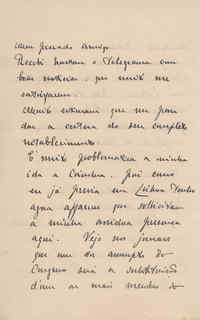 Meu presado Amigo
Recebi hontem o Telegrama com
boas noticias que muito me
satisfizeram.
Muito estimarei que me possa
dar a certeza do seu completo
restabelecimento
É muito problematica a minha
ida a Coimbra, pois como
eu já previa em Lisboa tenho
agora affazeres que sollicitam
a minha assidua presença
aqui. Vejo nos jornaes
que um dos assumptos do
Congresso será a substituição
d'um ou mais membros do